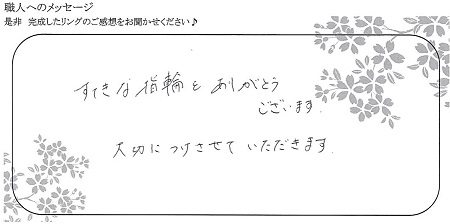 職人へのメッセージ
是非 完成したリングのご感想をお聞かせください♪
すてきな指輪を ありがとう
ございます.
大切に つけさせて いただきます.